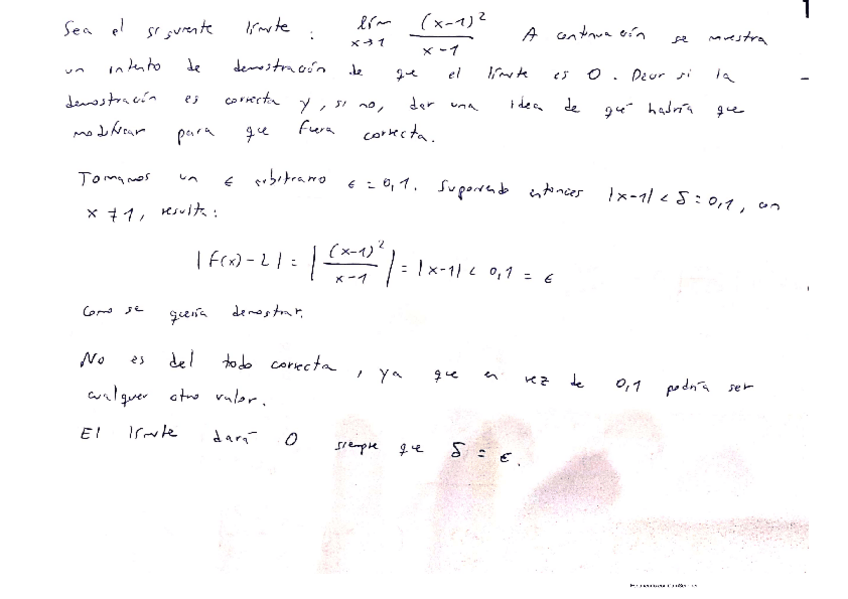 1
Sea el siguiente límite: lím x→1 (x-1)²/(x-1) A continuación se muestra
un intento de demostración de que el límite es 0. Decir si la
demostración es correcta y, si no, dar una idea de qué habría que
modificar para que fuera correcta.
Tomamos un ϵ arbitrario ϵ = 0,1. Suponiendo entonces |x-1| < δ = 0,1, con
x ≠ 1, resulta:
|F(x) - L| = |(x-1)²/(x-1)| = |x-1| < 0,1 = ϵ
Como se quería demostrar.
No es del todo correcta, ya que en vez de 0,1 podría ser
cualquier otro valor.
El límite dará 0 siempre que δ = ϵ.